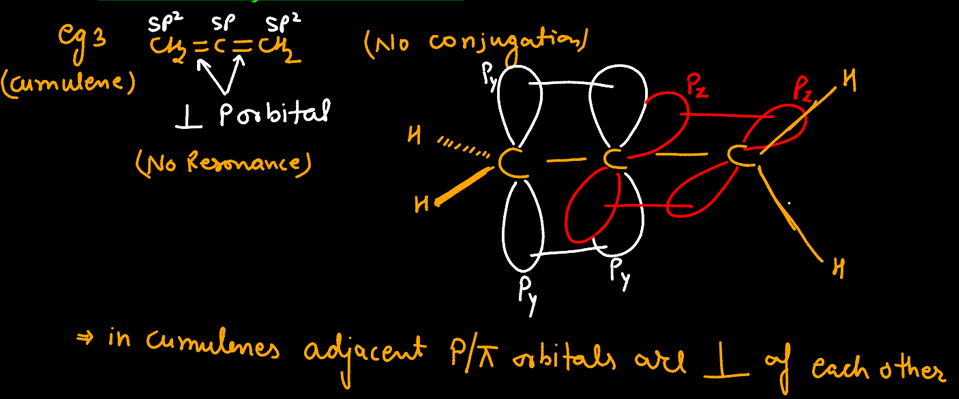 eg 3
(cumulene)
SP² SP SP²
CH₂=C=CH₂
⊥ P orbital
(No Resonance)
(No conjugation)
Py Pz Pz H
H C C C
H
H
Py Py
⇒ in cumulenes adjacent P/π orbitals are ⊥ of each other